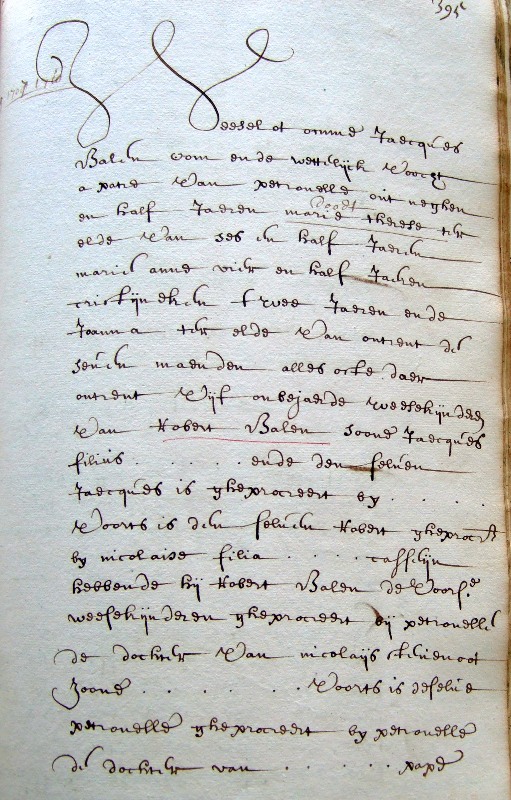 395
Jaecques
Balen oom ende wettelijck Voocgt
a patre Van petronelle out neghen
doodt
en half Jaeren marie therese ter
elde Van ses en half Jaeren
marie anne vier en half Jaeren
twee Jaeren ende
Joanna ter elde Van ontrent de
seuen maenden alles ofte daer
ontrent Vijf onbejaerde weesekijnderen
Van Robert Balen soone Jaecques
filius . . . . . ende den seluen
Jaecques is gheprocreert by . . .
Voorts is den seluen Robert
by nicolaise filia . . . . . casseijn
hebbende hij Robert Balen de Voors.e
weesekijnderen gheprocreert bij petronelle
de dochter Van nicolaijs
soone . . . . . . Voorts is deselue
petronelle gheprocreert by petronelle
de dochter van . . . . . . pape